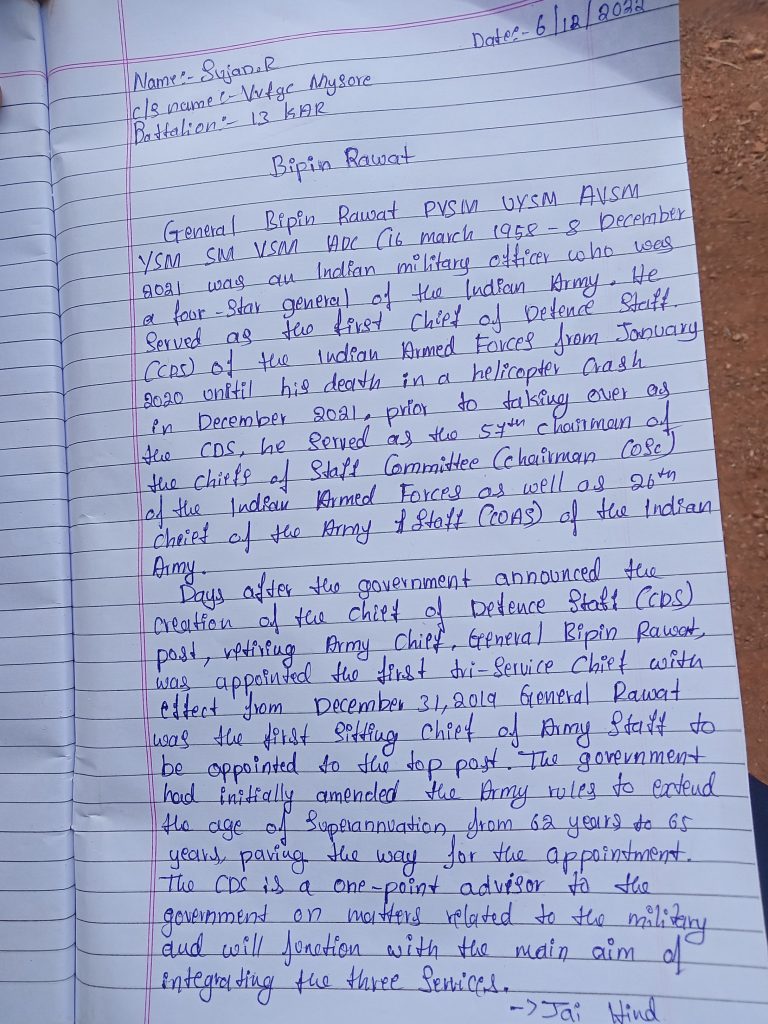 Date:- 6/12/2022
Name:- Sujan.R
c/g name:- Vvfgc Mysore
Battalion:- 13 KAR
Bipin Rawat
General Bipin Rawat PVSM UYSM AVSM
YSM SM VSM ADC (16 march 1958 - 8 December
2021 was an Indian military officer who was
a four-star general of the Indian Army. He
Served as the first Chief of Defence Staff.
(CDS) of the Indian Armed Forces from January
2020 unitil his death in a helicopter crash
in December 2021, prior to taking over as
the CDS, he Served as the 57th chairman of
the chiefs of Staff Committee (chairman COSC)
of the Indian Armed Forces as well as 26th
Cheief of the Army Staff (COAS) of the Indian
Army.
Days after the government announced the
creation of the chief of Defence Staff (CDS)
post, retiring Army Chief, General Bipin Rawat,
was appointed the first tri-Service Chief with
effect from December 31, 2019 General Rawat
was the first Sitting Chief of Army Staff to
be appointed to the top post. The government
had initially amended the Army rules to extend
the age of Superannuation from 62 years to 65
years, paving the way for the appointment.
The CDS is a one-point advisor to the
government on matters related to the military
and will function with the main aim of
integrating the three Services.
-> Jai Hind